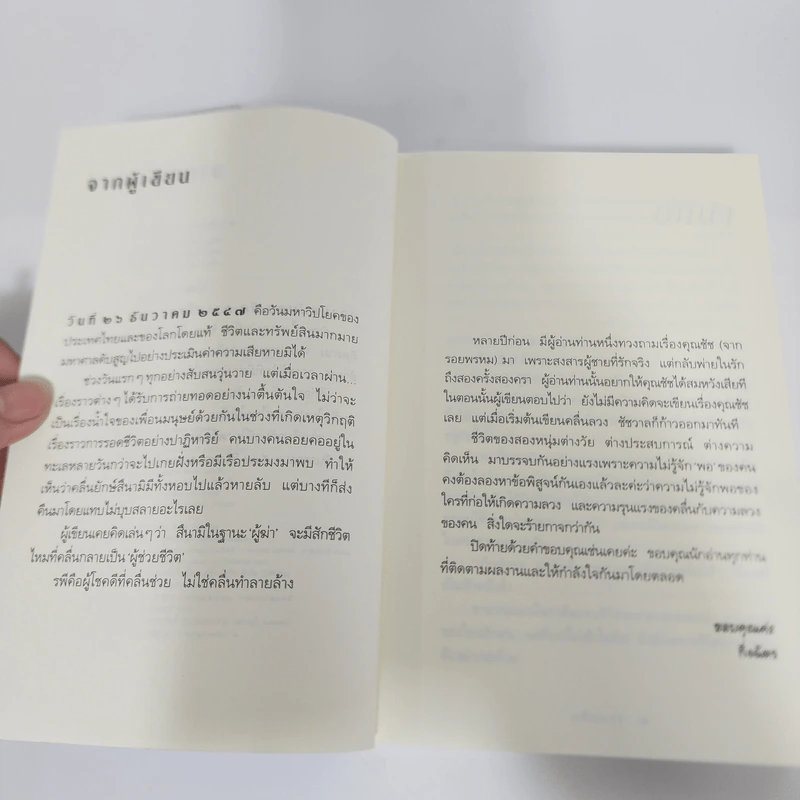 จากผู้เขียน
วันที่ ๒๖ ธันวาคม ๒๕๔๗ คือวันมหาวิปโยคของ
ประเทศไทยและของโลกโดยแท้ ชีวิตและทรัพย์สินมากมาย
มหาศาลดับสูญไปอย่างประเมินค่าความเสียหายมิได้
ช่วงวันแรกๆ ทุกอย่างสับสนวุ่นวาย แต่เมื่อเวลาผ่าน...
เรื่องราวต่างๆ ได้รับการถ่ายทอดอย่างน่าตื้นตันใจ ไม่ว่าจะ
เป็นเรื่องน้ำใจของเพื่อนมนุษย์ด้วยกันในช่วงที่เกิดเหตุวิกฤติ
เรื่องราวการรอดชีวิตอย่างปาฏิหาริย์ คนบางคนลอยคออยู่ใน
ทะเลหลายวันกว่าจะไปเกยฝั่งหรือมีเรือประมงมาพบ ทำให้
เห็นว่าคลื่นยักษ์สึนามิมีทั้งหอบไปแล้วหายลับ แต่บางทีก็ส่ง
คืนมาโดยแทบไม่บุบสลายอะไรเลย
ผู้เขียนเคยคิดเล่นๆ ว่า สึนามิในฐานะ 'ผู้ฆ่า' จะมีสักชีวิต
ไหมที่คลื่นกลายเป็น 'ผู้ช่วยชีวิต'
รพีคือผู้โชคดีที่คลื่นช่วย ไม่ใช่คลื่นทำลายล้าง
หลายปีก่อน มีผู้อ่านท่านหนึ่งทวงถามเรื่องคุณชัช (จาก
รอยพรหม) มา เพราะสงสารผู้ชายที่รักจริง แต่กลับพ่ายในรัก
ถึงสองครั้งสองครา ผู้อ่านท่านนั้นอยากให้คุณชัชได้สมหวังเสียที
ในตอนนั้นผู้เขียนตอบไปว่า ยังไม่มีความคิดจะเขียนเรื่องคุณชัช
เลย แต่เมื่อเริ่มต้นเขียนคลื่นลวง ชัชวาลก็ก้าวออกมาทันที
ชีวิตของสองหนุ่มต่างวัย ต่างประสบการณ์ ต่างความ
คิดเห็น มาบรรจบกันอย่างแรงเพราะความไม่รู้จัก 'พอ' ของคน
คงต้องลองหาข้อพิสูจน์กันเองแล้วละค่ะว่าความไม่รู้จักพอของ
ใครที่ก่อให้เกิดความลวง และความรุนแรงของคลื่นกับความลวง
ของคน สิ่งใดจะร้ายกาจกว่ากัน
ปิดท้ายด้วยคำขอบคุณเช่นเคยค่ะ ขอบคุณนักอ่านทุกท่าน
ที่ติดตามผลงานและให้กำลังใจกันมาโดยตลอด
ขอบคุณค่ะ
กิ่งฉัตร